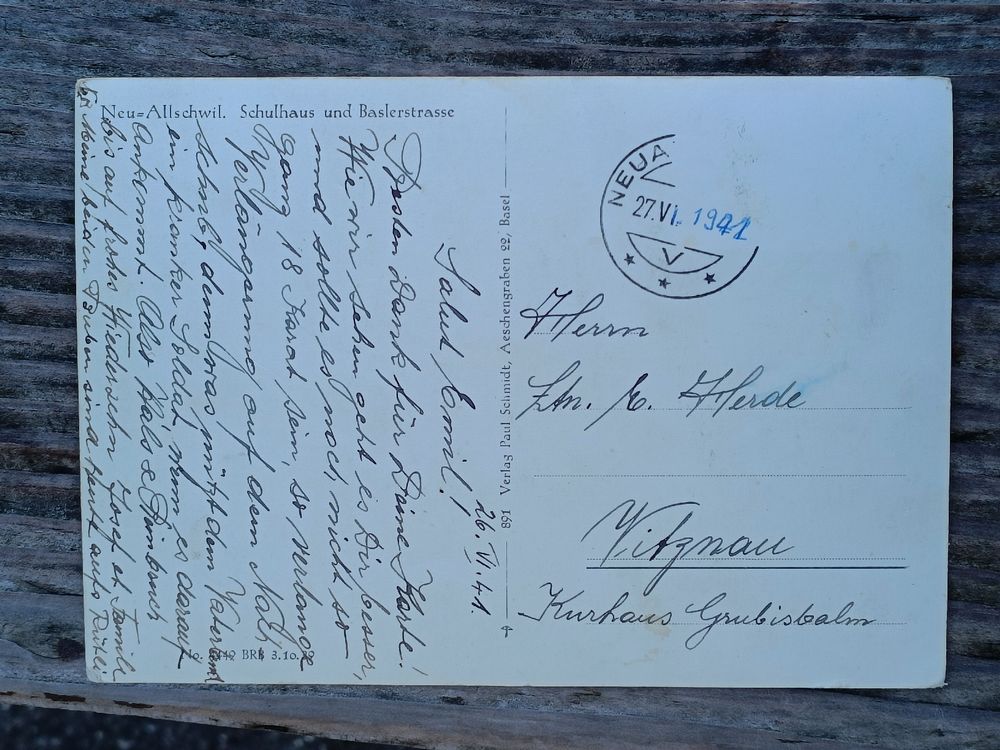 Neu=Allschwil. Schulhaus und Baslerstrasse
26. VI. 41.
Salut Emil!
Besten Dank für Deine Karte!
Wie wir sehen geht es Dir besser,
und sollte es noch nicht so
ganz 18 Karat sein, so verlange
Verlängerung auf dem Nach
Schub, denn was nützt dem Vaterland
ein kranker Soldat, wenn es darauf
Ankommt. Also Hals &
bis auf frohes Wiedersehn Josef et Famill
Meine beiden Buben sind heut aufs Rütli
No. BRB 3.10.39
891 Verlag Paul Schmidt, Aeschengraben 22, Basel
NEUA
27.VI. 1941
V
Herrn
Ltn. E. Herde
Vitznau
Kurhaus Grubisbalm